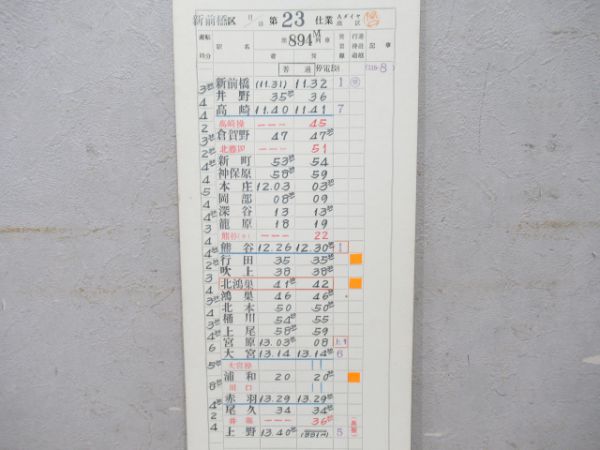 新前橋区 第23仕業 Aダイヤ
894M列車
運転時分 駅名 着 発 記事
普通 停電
新前橋 (11.31) 11.32 1
3 井野 35 36
4 高崎 11.40 11.41 7
高崎操 --- 45
2 倉賀野 47 47
北藤岡 --- 51
新町 53 54
4 神保原 58 59
本庄 12.03 03
岡部 08 09
深谷 13 13
籠原 18 19
--- 22
熊谷 12.26 12.30 1
行田 35 35
吹上 38 38
北鴻巣 41 42
鴻巣 46 46
北本 50 50
桶川 54 55
上尾 58 59
宮原 13.03 08 上1
6 大宮 13.14 13.14 6
大宮操
浦和 20 20
川口
赤羽 13.29 13.29
尾久 34 34
--- 36
4 上野 13.40 5